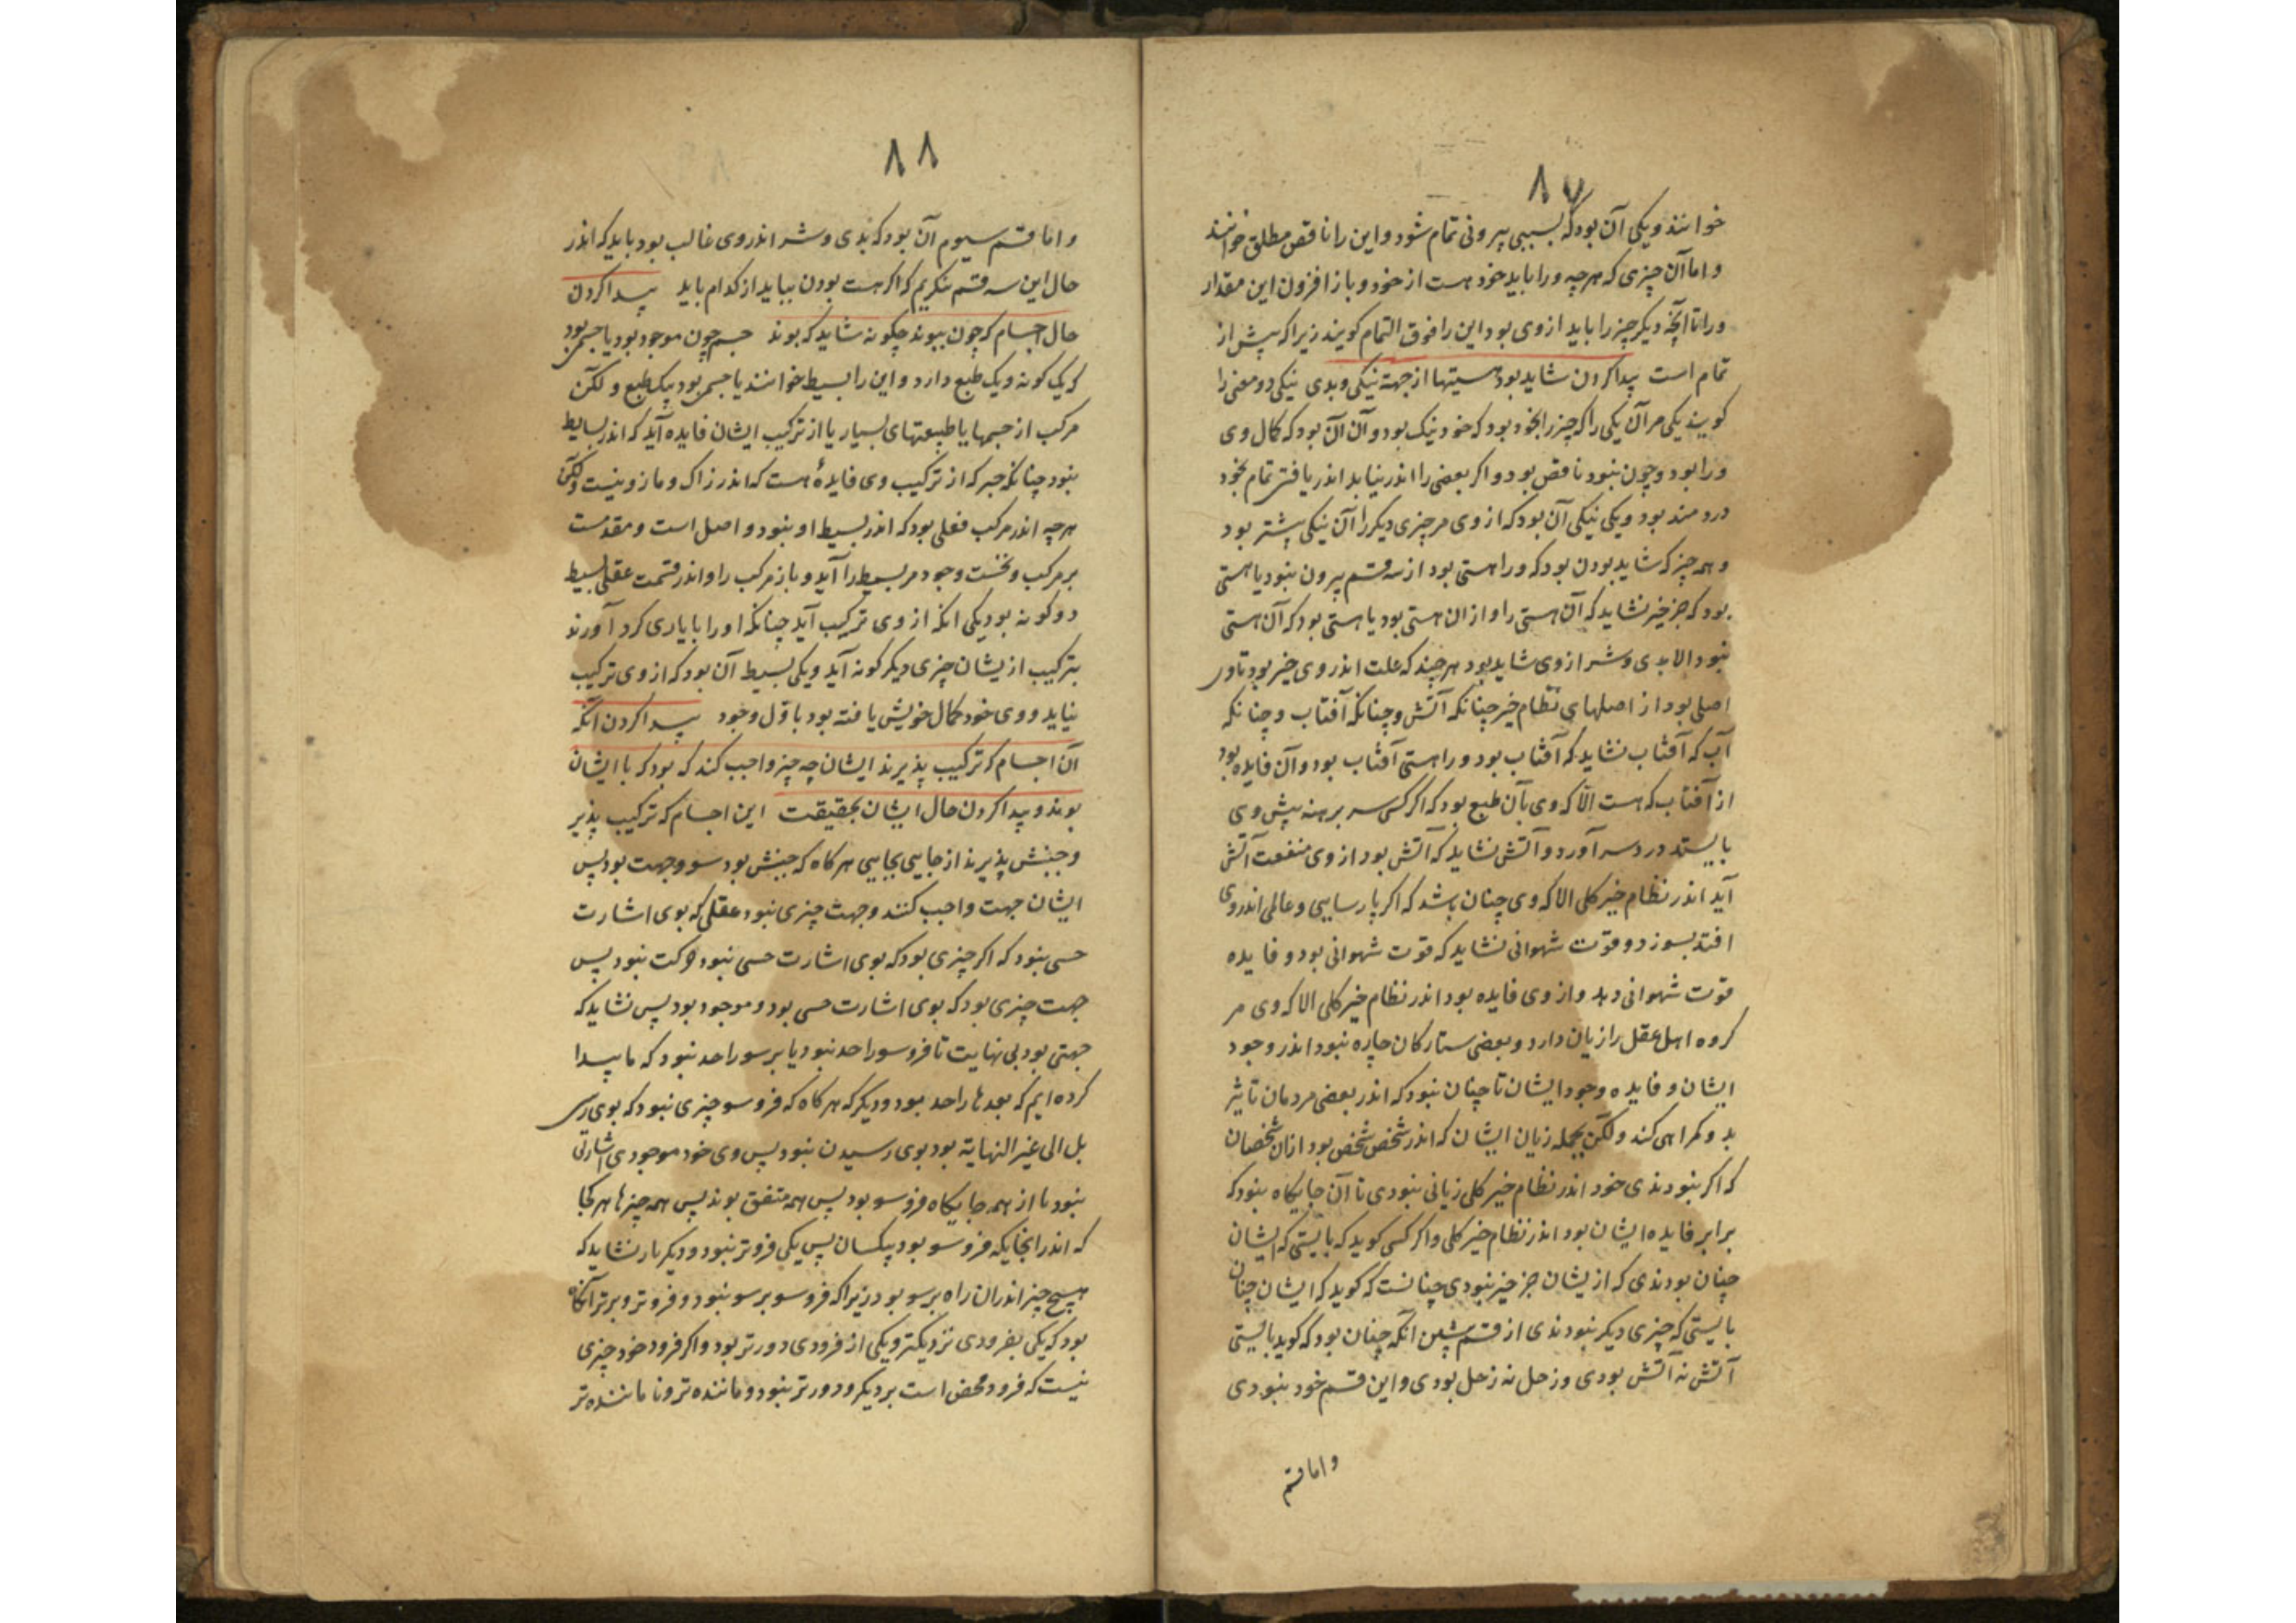 ٨٧
خوانند ویکی آن بود که بسببی بیرونی تمام شود و این را ناقص مطلق خوانند
و اما آن چیزی که هرچه ورا باید خود هست از خود و باز افزون این مقدار
ورا تا آنچه دیگر چیز را باید از وی بود این را فوق التمام کویند زیرا که پیش از
تمام است پیدا کردن شاید بود هستیها از جهت نیکی وبدی نیکی دو معنی را
کویند یکی مر آن یکی را که چیز را بخود بود که خود نیک بود و آن آن بود که کمال وی
ورا بود و چون نبود ناقص بود و اکر بعضی را اندر نیابد اندر یافتن تمام بخود
دردمند بود ویکی نیکی آن بود که از وی مر چیزی دیگر را آن نیکی بیشتر بود
و همه چیز که شاید بودن بود که ورا هستی بود از سه قسم بیرون نبود یا هستی
بود که جز خیر نشاید که آن هستی را و از ان هستی بود یا هستی بود که آن هستی
نبود الا بدی و شر از وی شاید بود هر چند که علت اندر وی خیر بود تا ور
اصلی بود از اصلهای نظام خیر چنانکه آتش و چنانکه آفتاب و چنانکه
آب که آفتاب نشاید که آفتاب بود و را هستی آفتاب بود و آن فایده بود
از آفتاب که هست الا که وی بآن طبع بود که اکر کسی سر برهنه پیش وی
بایستد درد سر آورد و آتش نشاید که آتش بود از وی منفعت آتش
آید اندر نظام خیر کلی الا که وی چنان باشد که اکر پارسایی و عالمی اندر وی
افتد بسوزد و قوت شهوانی نشاید که قوت شهوانی بود و فایده
قوت شهوانی دهد و از وی فایده بود اندر نظام خیر کلی الا که وی مر
کروه اهل عقل را زیان دارد و بعضی ستارکان چاره نبود اندر وجود
ایشان و فایده وجود ایشان تا چنان نبود که اندر بعضی مردمان تاثیر
بد و کمراهی کند ولکن بجمله زیان ایشان که اندر شخص شخص بود ازان شخصان
که اکر نبودندی خود اندر نظام خیر کلی زیانی نبودی تا آن جایکاه نبود که
برابر فایده ایشان بود اندر نظام خیر کلی و اکر کسی کوید که بایستی که ایشان
چنان بودندی که از یشان جز خیر نبودی چنانست که کوید که ایشان چنان
بایستی که چیزی دیگر نبودندی از قسم پیشین آنکه چنان بود که کوید بایستی
آتش نه آتش بودی و زحل نه زحل بودی و این قسم خود نبودی
و اما قسم
٨٨
و اما قسم سیوم آن بود که بدی و شر اندر وی غالب بود باید که اندر
حال این سه قسم بنکریم که اکر هست بودن بباید از کدام باید پیدا کردن
حال اجسام که چون بوند چکونه شاید که بوند جسم چون موجود بود یا جسمی بود
که یک کونه و یک طبع دارد و این را بسیط خوانند یا جسمی بود بیک طبع و لکن
مرکب از جسمها یا طبیعتهای بسیار یا از ترکیب ایشان فایده آید که اندر بسایط
نبود چنانکه حبر که از ترکیب وی فایدهٔ هست که اندر زاک و مازو نیست ولکن
هرچه اندر مرکب فعلی بود که اندر بسیط او نبود و اصل است و مقدمست
بر مرکب و نخست وجود مر بسیط را آید و باز مرکب را و اندر قسمت عقلی بسیط
دو کونه بود یکی انکه از وی ترکیب آید چنانکه او را با یاری کرد آورند
بترکیب از یشان چیزی دیگر کونه آید و یکی بسیط آن بود که از وی ترکیب
نیاید و وی خود کمال خویش یافته بود باول وجود پیدا کردن آنکه
آن اجسام که ترکیب پذیرند ایشان چه چیز واجب کند که بود که با ایشان
بوند و پیدا کردن حال ایشان بحقیقت این اجسام که ترکیب پذیر
و جنبش پذیرند از جایی بجایی هر کاه که جنبش بود سو و جهت بود پس
ایشان جهت واجب کنند و جهت چیزی نبود عقلی که بوی اشارت
حسی نبود که اکر چیزی بود که بوی اشارت حسی نبود حرکت نبود پس
جهت چیزی بود که بوی اشارت حسی بود و موجود بود پس نشاید که
جهتی بود بی نهایت تا فروسو را حد نبود یا برسو را حد نبود که ما پیدا
کرده ایم که بعدها را حد بود و دیگر که هر کاه که فروسو چیزی نبود که بوی رسی
بل الی غیر النهایة بود بوی رسیدن نبود پس وی خود موجودی اشارتی
نبود تا از همه جایکاه فروسو بود پس همه متفق بوند پس همه چیزها هر کجا
که اندر انجایکه فروسو بود یکسان پس یکی فروتر نبود و دیگر بار نشاید که
هیچ چیز اندران راه برسو بود زیرا که فروسو برسو نبود و فروتر و برتر آنکاه
بود که یکی بفرودی نزدیکتر و یکی از فرودی دورتر بود و اکر فرود خود چیزی
نیست که فرود محض است بر دیگر و دورتر نبود و ماننده تر و نا ماننده تر